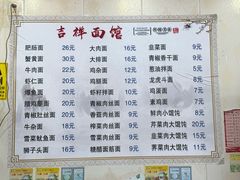 吉祥面馆
肥肠面 26元
蟹黄面 30元
牛肉面 22元
虾仁面 22元
爆鱼面 20元
腊鸡腿面 20元
青椒肚丝面 20元
牛杂面 18元
雪菜鱿鱼面 15元
狮子头面 16元
大肉面 16元
大排面 16元
鸡杂面 16元
鸡丁面 16元
虾籽拌面 10元
鸡腿面 15元
青椒肉丝面 10元
榨菜肉丝面 10元
雪菜肉丝面 10元
糖醋面筋面 9元
韭菜面 9元
青椒香干面 9元
葱油拌面 7元
龙虎斗面 8元
鸡蛋面 7元
素鸡面 7元
鲜肉小馄饨 8元
芹菜肉大馄饨 15元
韭菜肉大馄饨 15元
荠菜肉大馄饨 11元